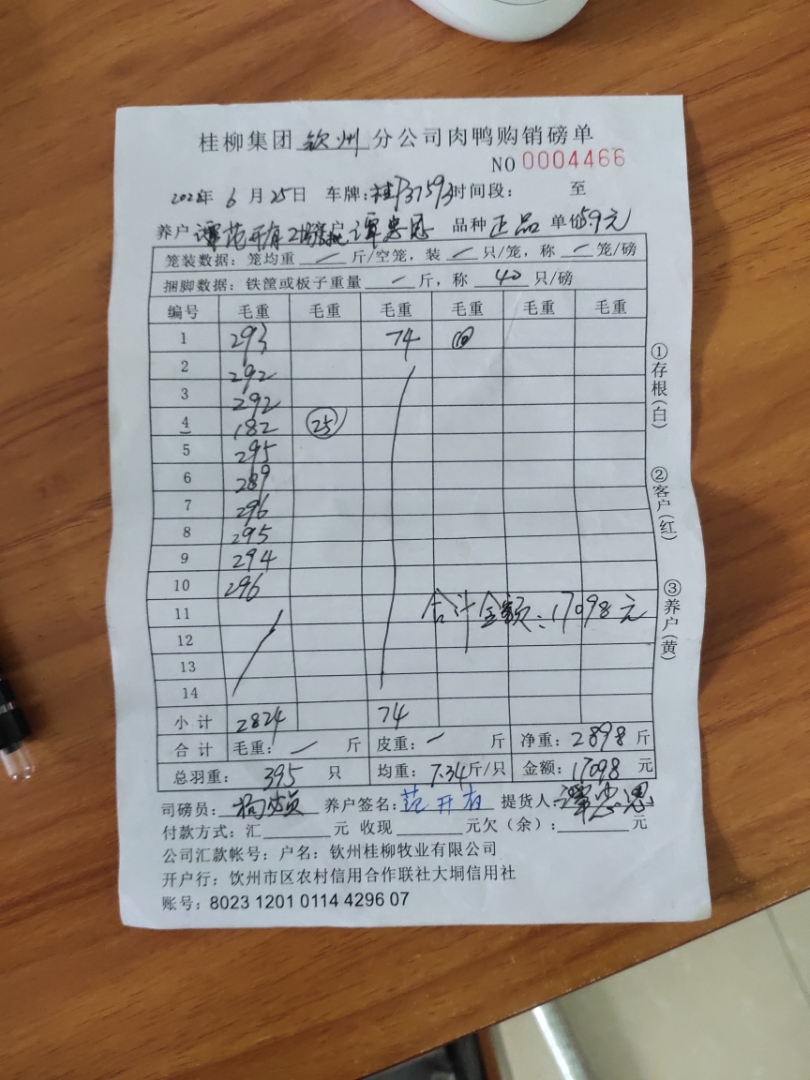 桂柳集团 钦州 分公司肉鸭购销磅单
NO 0004466
6 月 25日 车牌: 时间段: 至
养户 品种 正品 单价 5.9元
笼装数据: 笼均重 — 斤/空笼, 装 — 只/笼, 称 — 笼/磅
捆脚数据: 铁筐或板子重量 — 斤, 称 40 只/磅
编号 毛重 毛重 毛重 毛重 毛重 毛重
1 293 74 ⑩
2 292
3 292
4 182 25
5 295
6 289
7 296
8 295
9 294
10 296
11 合计金额:17098元
12
13
14
小计 2824 74
合计 毛重: — 斤 皮重: — 斤 净重: 2898 斤
总羽重: 395 只 均重: 7.34 斤/只 金额: 17098 元
司磅员: 养户签名: 范开有 提货人: 谭忠恩
付款方式: 汇 元 收现 元欠(余): 元
公司汇款帐号: 户名: 钦州桂柳牧业有限公司
开户行: 钦州市区农村信用合作联社大垌信用社
账号: 8023 1201 0114 4296 07
①存根(白)
②客户(红)
③养户(黄)